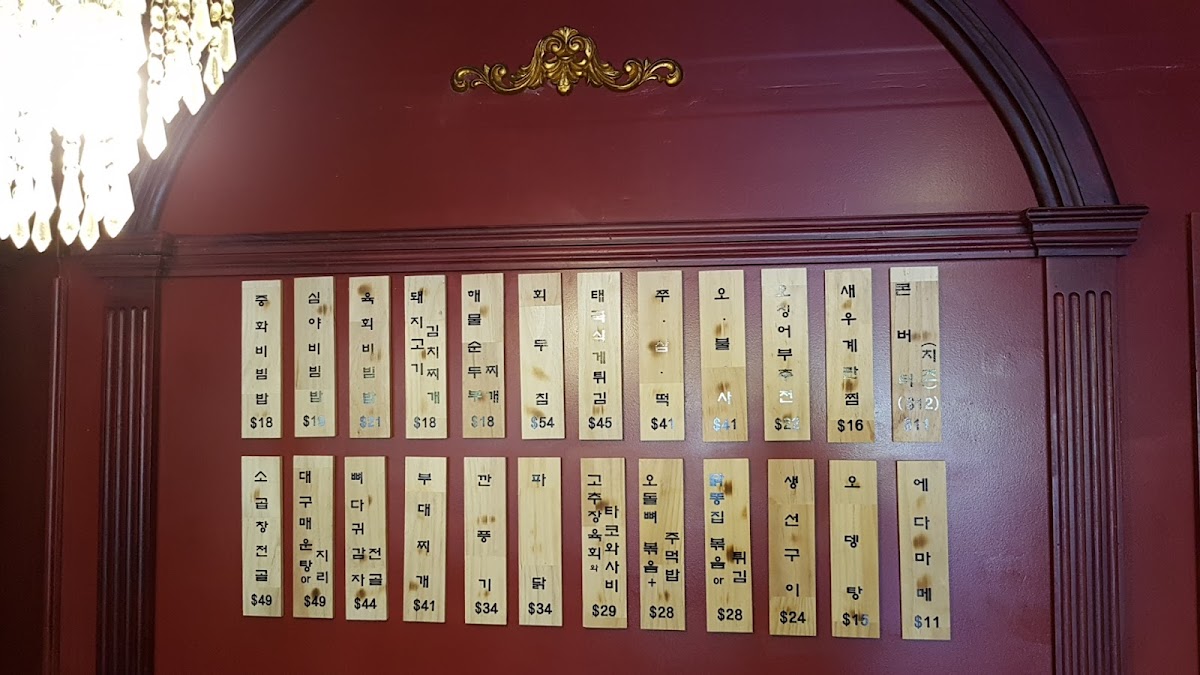 중화비빔밥
$18
심야비빔밥
육회비빔밥
$21
돼지고기
김치찌개
$18
해물순두부
찌개
$18
회두침
$54
태국식게튀김
$45
쭈·삼·떡
$41
오·불·사
$41
오징어부추전
새우계란찜
$16
콘버터
(치즈)
($12)
$11
소곱창전골
$49
대구매운탕
or
지리
$49
뼈다귀감자
전골
$44
부대찌개
$41
깐풍기
$34
파닭
$34
고추장육회와
타코와사비
$29
오돌뼈 볶음+
주먹밥
$28
닭똥집 볶음or
튀김
$28
생선구이
$24
오뎅탕
$15
에다마메
$11